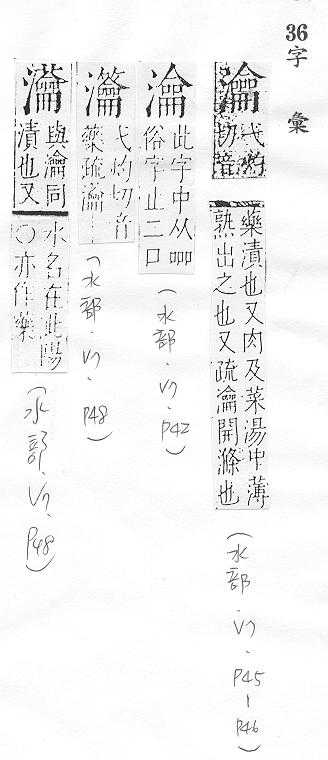 36字彙
瀹 弋灼切音
藥漬也又肉及菜湯中薄
熟出之也又疏瀹開滌也
(水部.巳.P45-P46)
瀹 此字中从吅
俗字止二口
(水部.巳.P42)
弋灼切音
藥疏瀹
(水部.巳.P48)
與瀹同
漬也又
水名在
○亦作
(水部.巳.P48)